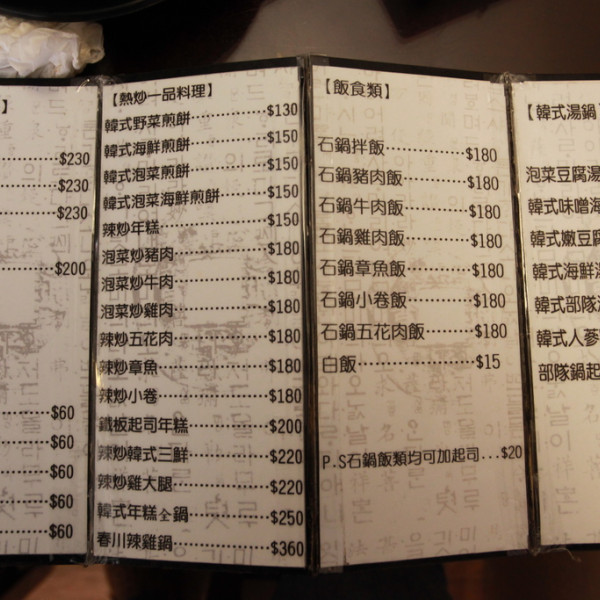 】
$230
$230
$230
$200
$60
$60
$60
$60
$60
【熱炒一品料理】
韓式野菜煎餅 $130
韓式海鮮煎餅 $150
韓式泡菜煎餅 $150
韓式泡菜海鮮煎餅
辣炒年糕 $150
泡菜炒豬肉 $180
泡菜炒牛肉 $180
泡菜炒雞肉 $180
辣炒五花肉 $180
辣炒章魚 $180
辣炒小卷 $180
鐵板起司年糕 $200
辣炒韓式三鮮 $220
辣炒雞大腿 $220
韓式年糕全鍋 $250
春川辣雞鍋 $360
【飯食類】
石鍋拌飯 $180
石鍋豬肉飯 $180
石鍋牛肉飯 $180
石鍋雞肉飯 $180
石鍋章魚飯 $180
石鍋小卷飯 $180
石鍋五花肉飯 $180
白飯 $15
P.S石鍋飯類均可加起司...$20
【韓式湯鍋
泡菜豆腐湯
韓式味噌海
韓式嫩豆腐
韓式海鮮
韓式部隊
韓式人參
部隊鍋起